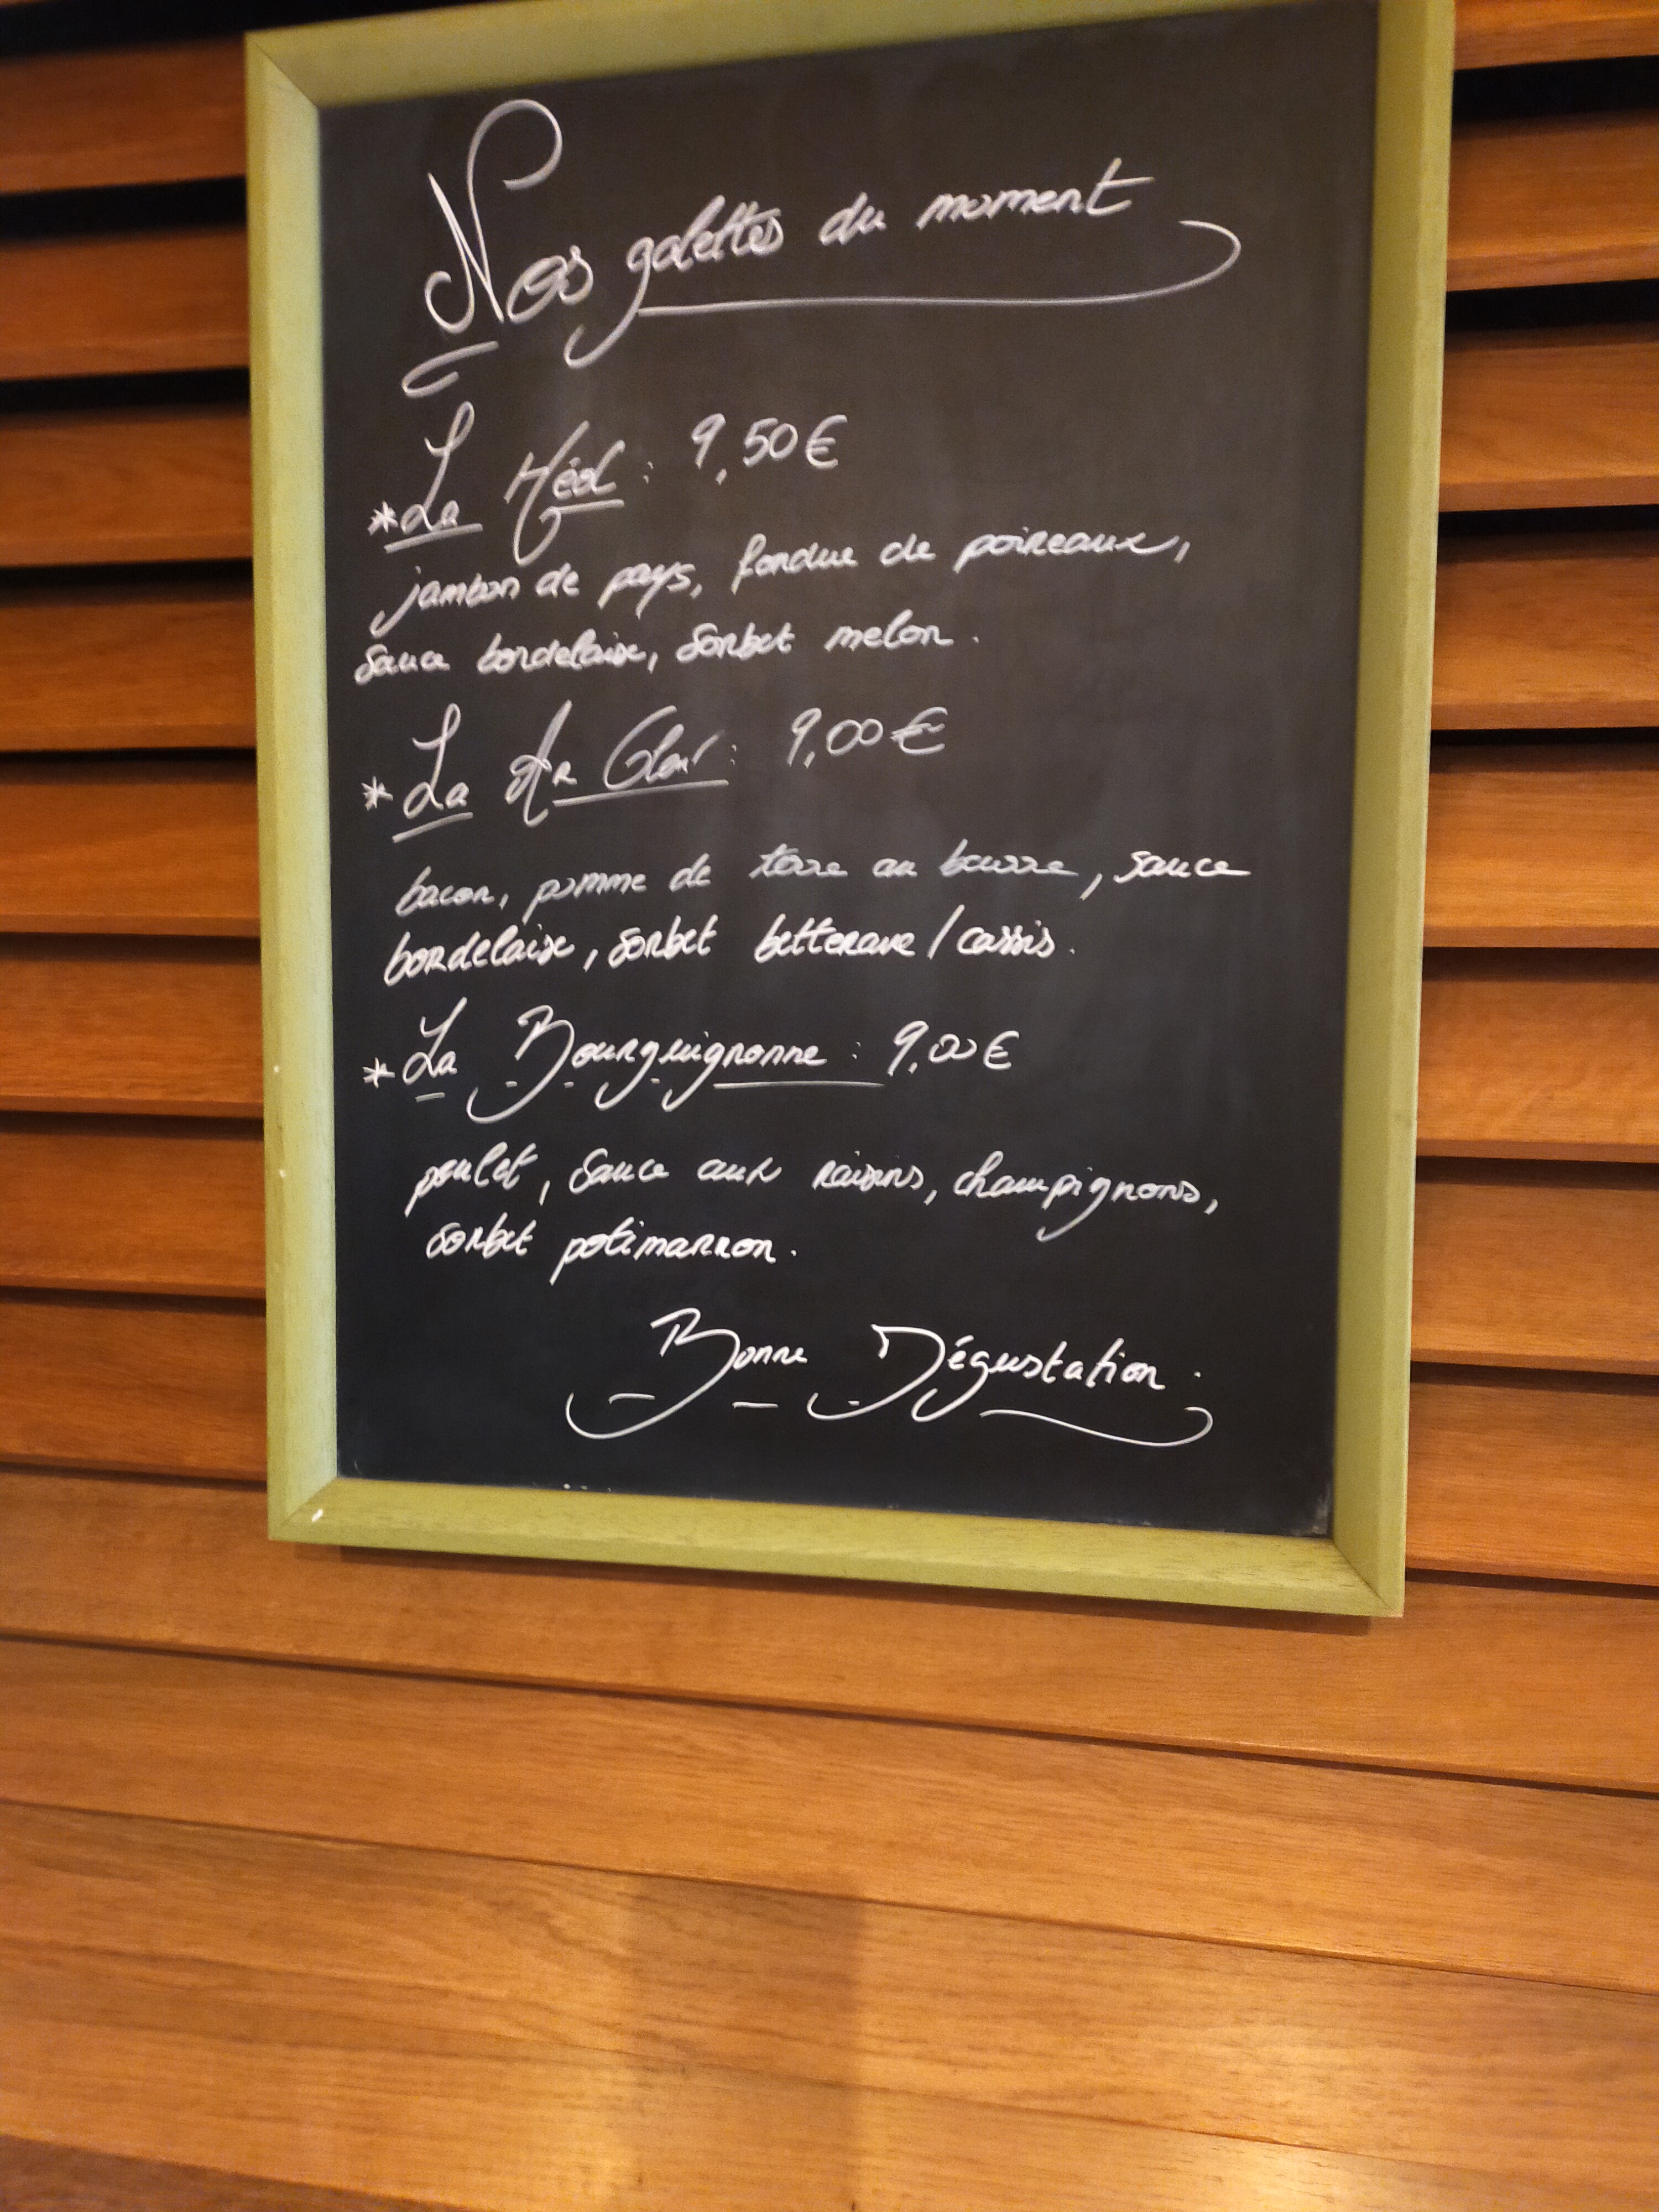 Nos galettes du moment
* La Héol : 9,50€
jambon de pays, fondue de poireaux,
sauce bordelaise, sorbet melon.
* La Ar Glav : 9,00€
bacon, pomme de terre au beurre, sauce
bordelaise, sorbet betterave / cassis.
* La Bourguignonne : 9,00€
poulet, sauce aux raisins, champignons,
sorbet potimarron.
Bonne Dégustation.